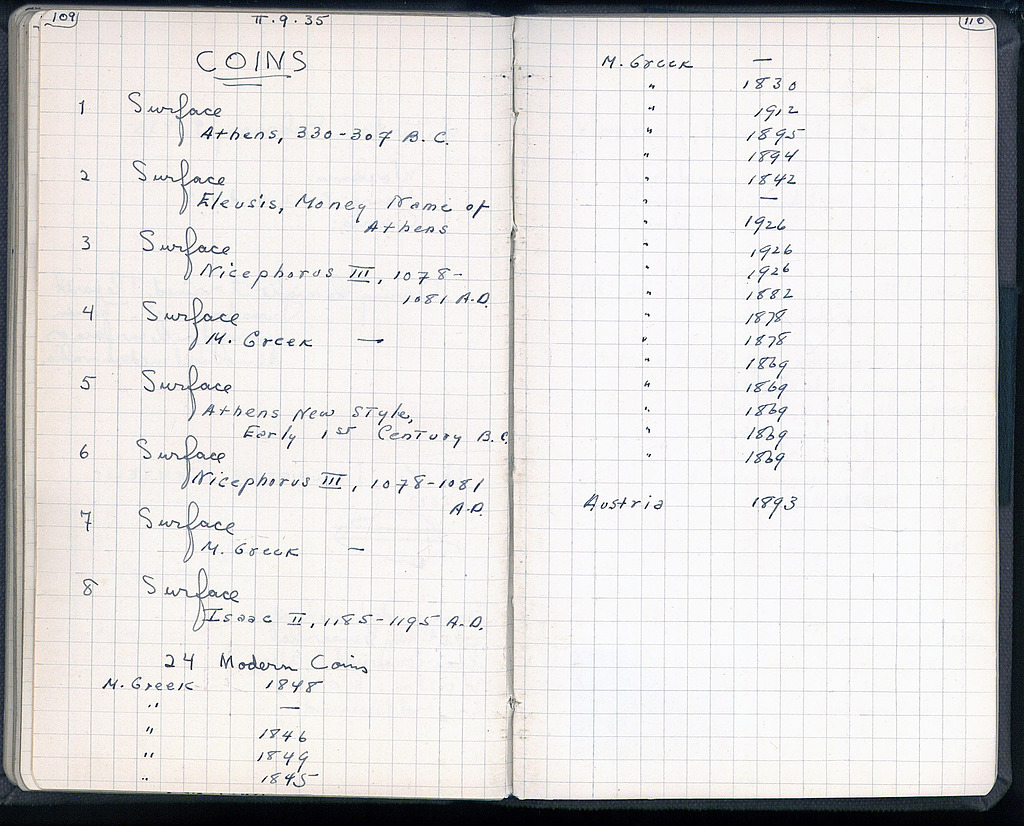 109
II.9.35
COINS
1 Surface
Athens, 330-307 B.C.
2 Surface
Eleusis, Money Name of
Athens
3 Surface
Nicephorus III, 1078-
1081 A.D.
4 Surface
M. Greek —
5 Surface
Athens New Style,
Early 1st Century B.C.
6 Surface
Nicephorus III, 1078-1081
A.D.
7 Surface
M. Greek —
8 Surface
Isaac II, 1185-1195 A.D.
24 Modern Coins
M. Greek 1848
" —
" 1846
" 1849
" 1845
110
M. Greek —
" 1830
" 1912
" 1895
" 1894
" 1842
" —
" 1926
" 1926
" 1926
" 1882
" 1878
" 1878
" 1869
" 1869
" 1869
" 1869
" 1869
Austria 1893